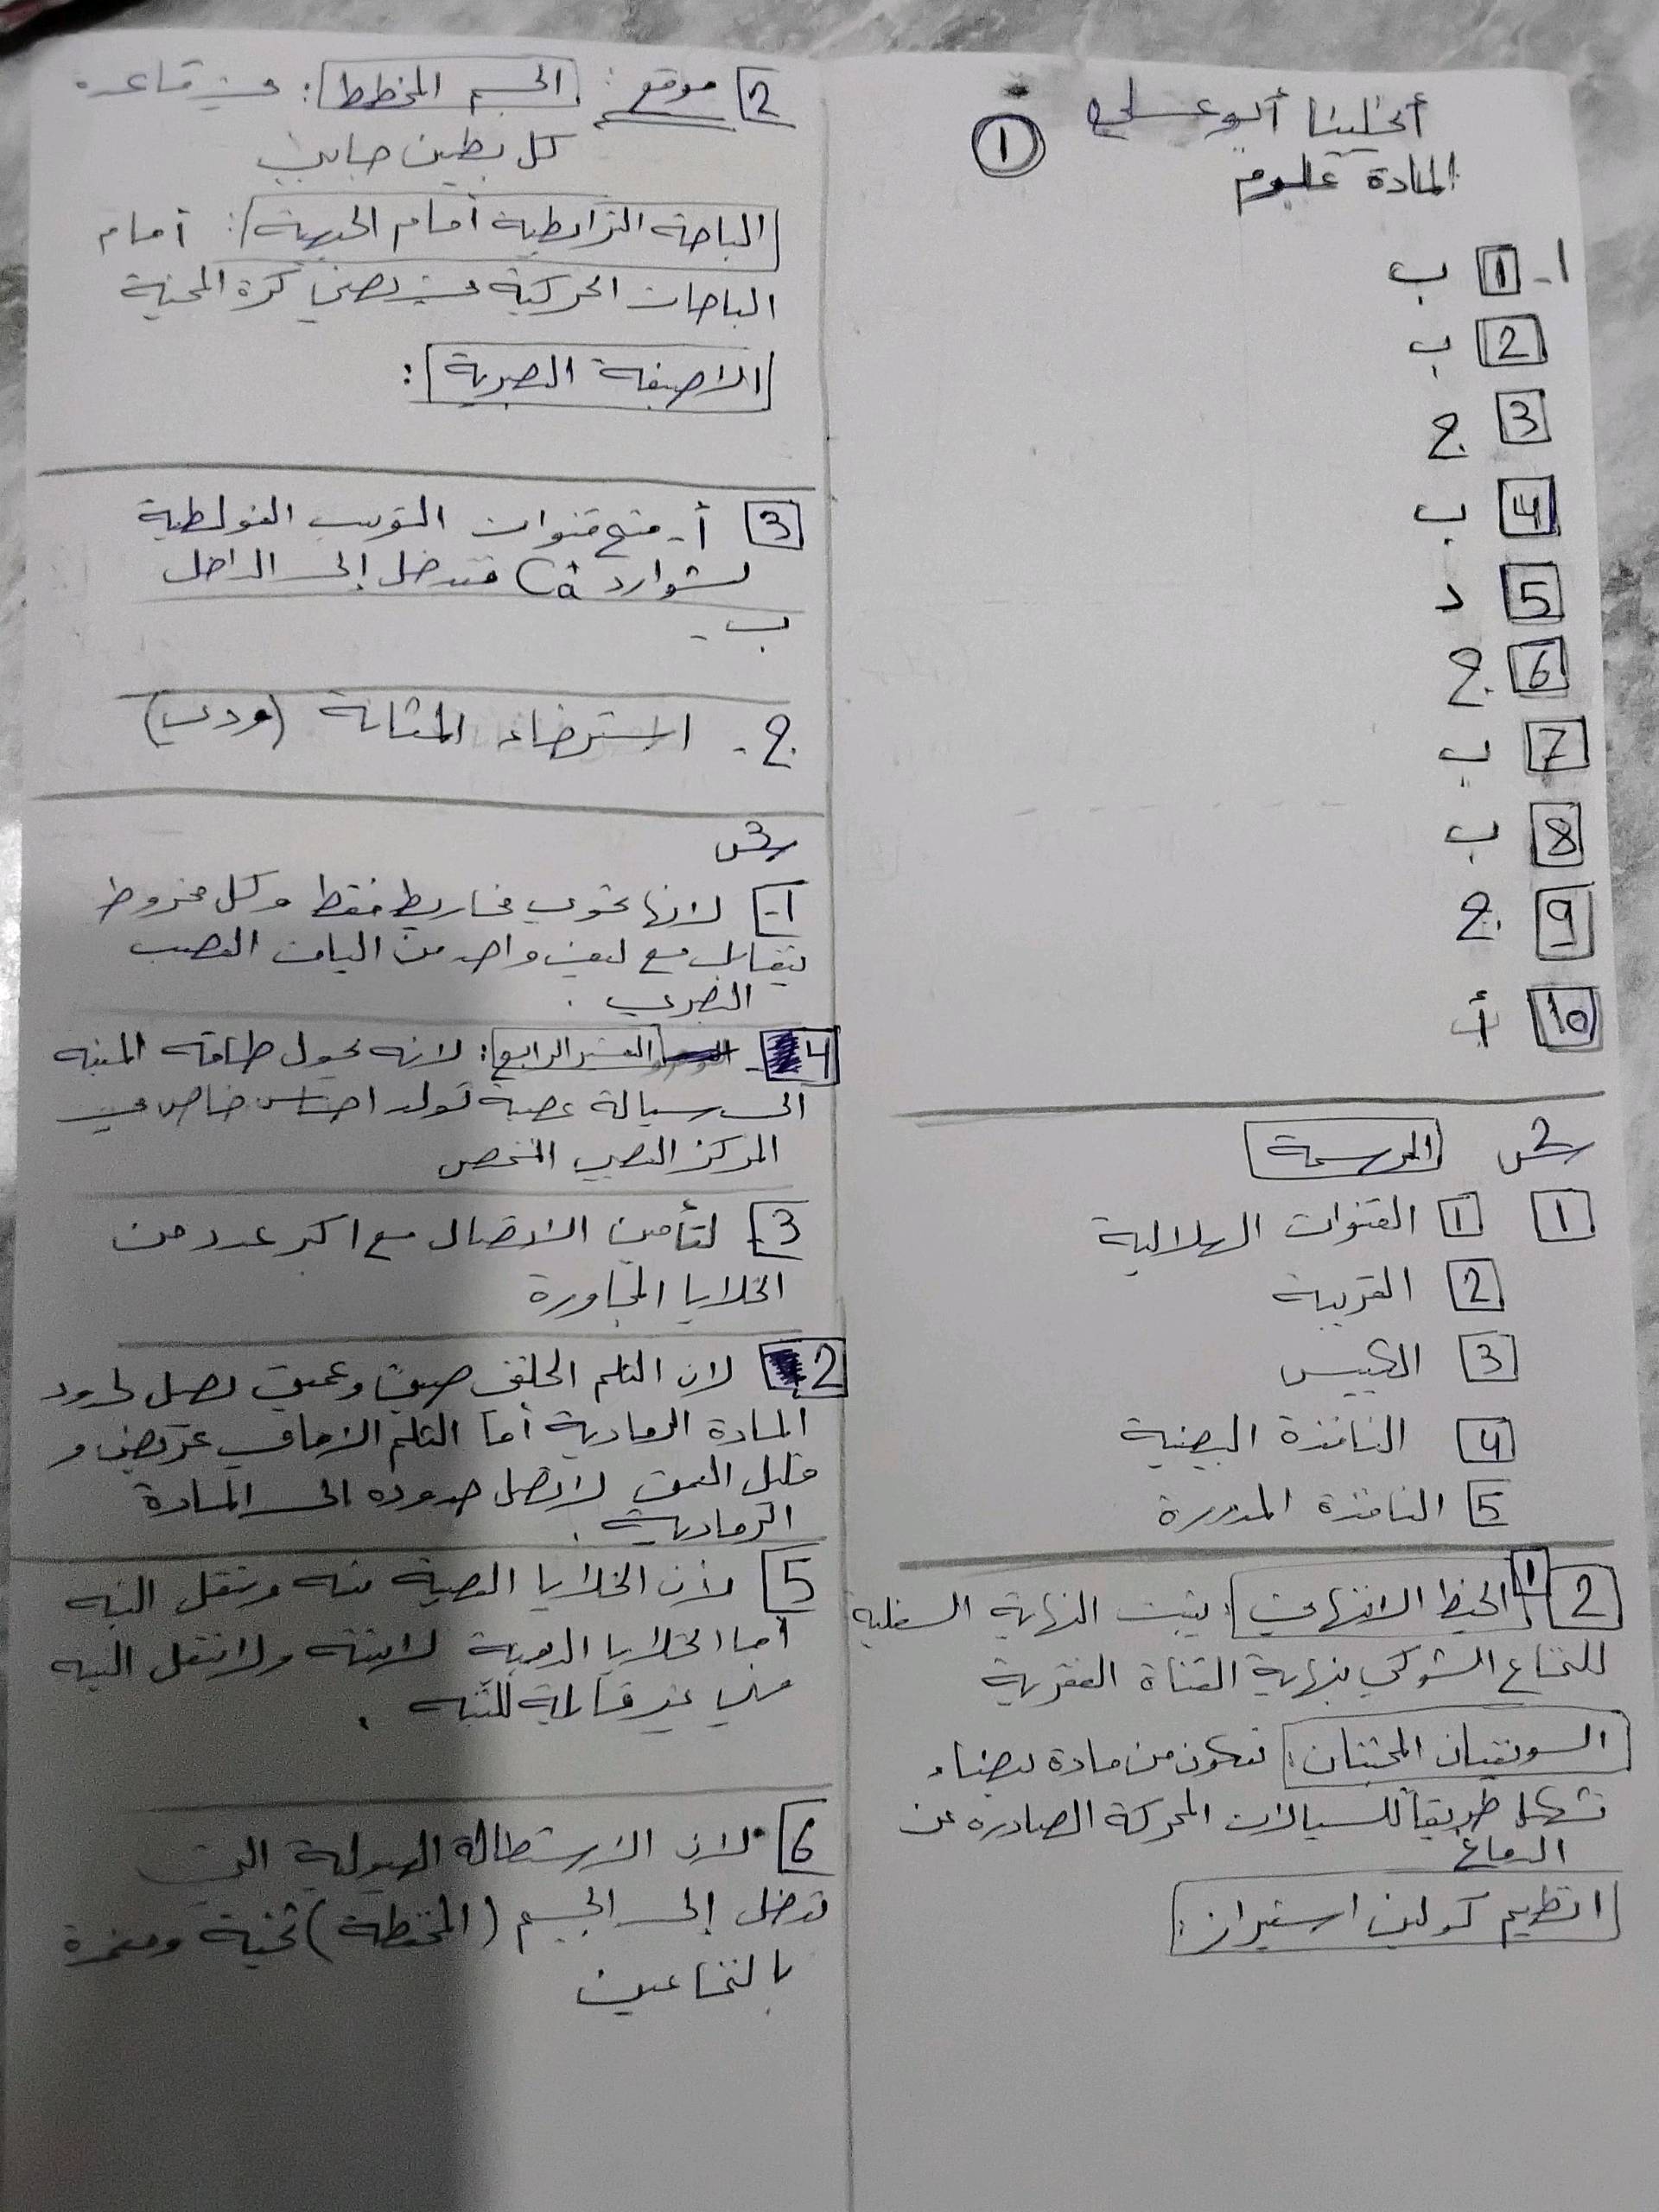 أنجلينا أبو عسلي
المادة علوم
1
1- 1 ب
2 ب
3 ج
4 ب
5 د
6 ج
7 ب
8 ب
9 ج
10 أ
س2 الرسمة
1 1 القنوات الهلالية
2 القريبة
3 الكييس
4 النافذة البيضية
5 النافذة المدورة
2 1 الخيط الانتهائي: يثبت النهاية السفلية
للنخاع الشوكي بنهاية القناة الفقرية
السويقتان المخيتان: تتكون من مادة بيضاء
تشكل طريقاً للسيالات المحركة الصادرة عن
الدماغ
انظيم كولين استيراز:
2 موقع: الجسم المخطط: في قاعدة
كل بطين جانبي
الباحة الترابطية أمام الجبهية: أمام
الباحات الحركية في نصفي كرة المخية
الاصبغة البصرية:
3 أ- فتح قنوات التبويب الفولطية
لشوارد Ca فتدخل إلى الداخل
ب-
ج- استرخاء المثانة (ودي)
س3
1- لانها تحوي مخاريط فقط وكل مخروط
يتقابل مع ليف واحد من الياف العصب
البصري.
4- العشر الرابع: لانه يحول طاقة المنبه
الى سيالة عصبة تولد احساس خاص في
المركز العصبي المختص
3- لتأمين الاتصال مع اكبر عدد من
الخلايا المجاورة
2 لان الثلم الخلفي ضيق وعميق يصل لحدود
المادة الرمادية أما الثلم الامامي عريض و
قليل العمق لا تصل حدوده الى المادة
الرمادية.
5 لأن الخلايا العصبية تنبه وتنقل التنبه
أما الخلايا الدبقية لا تنبه ولا تنقل التنبه
فهي غير قابلة للتنبه.
6 لان الاستطالة الهيولية التي
تدخل إلى الجسم (المخططة) ثخينة ومغمدة
بالنخاعين